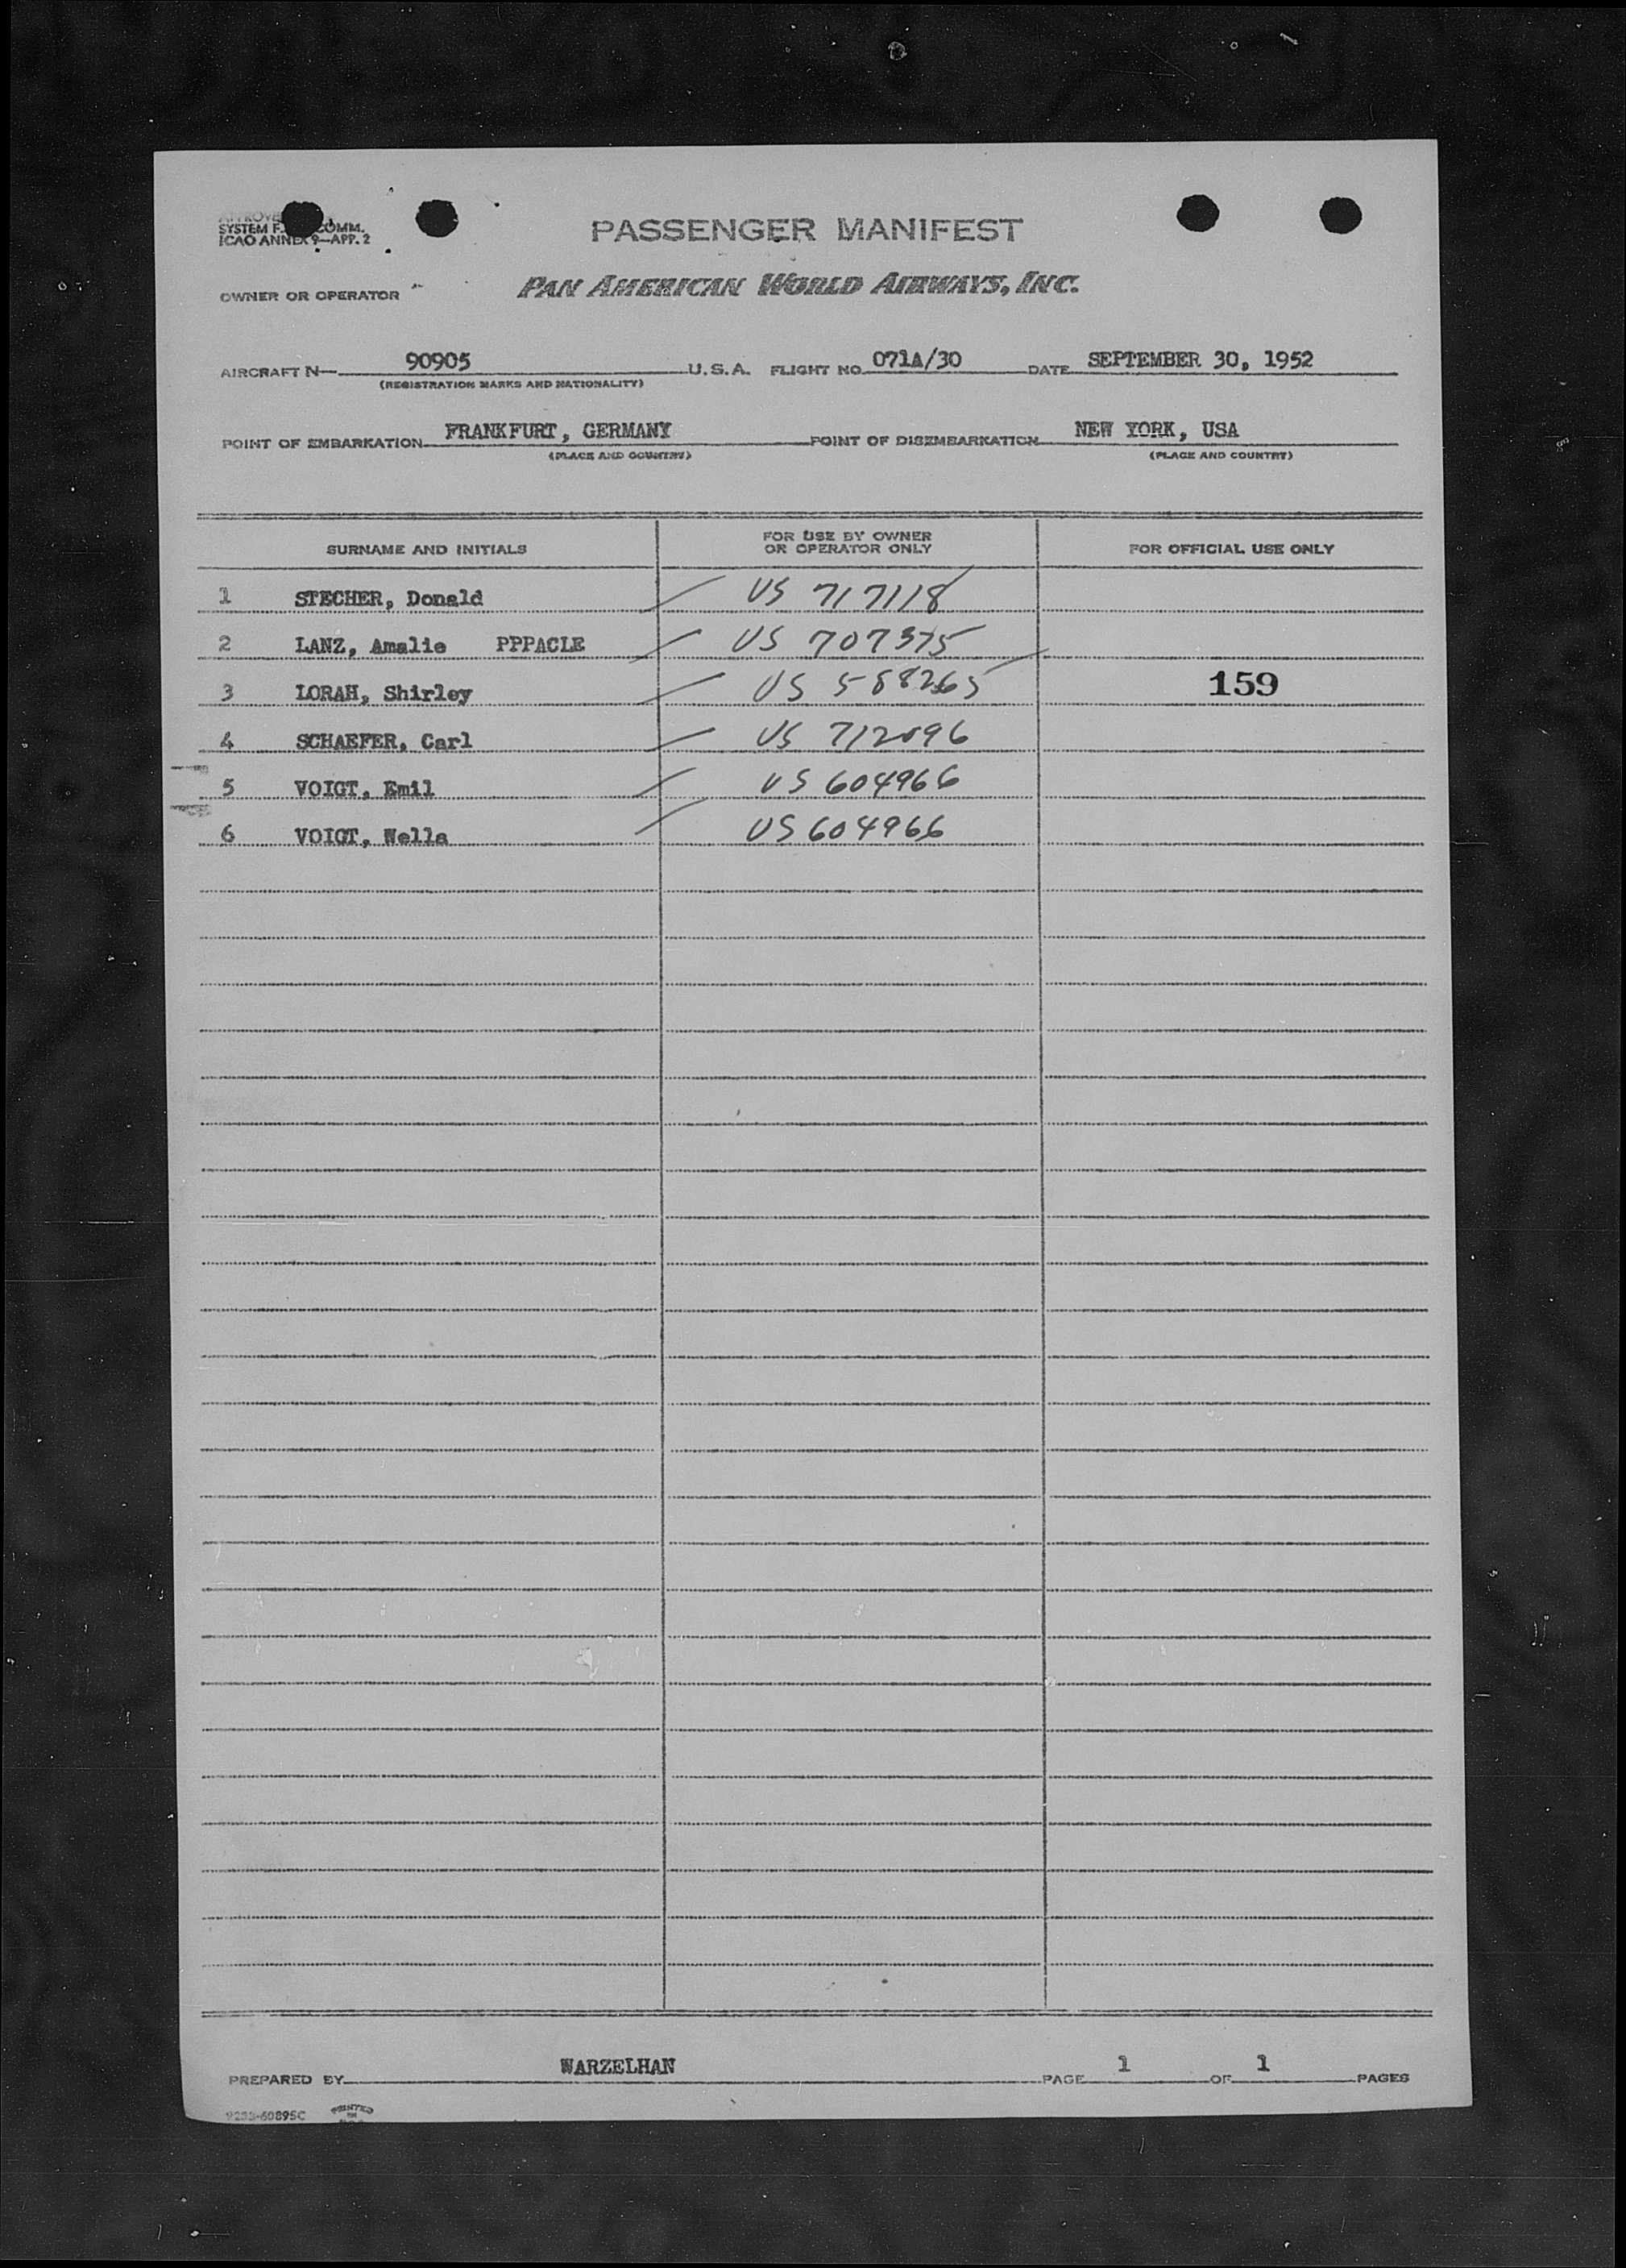 SYSTEM F. COMM.
ICAO ANNEX 9—APP. 2
PASSENGER MANIFEST
OWNER OR OPERATOR PAN AMERICAN WORLD AIRWAYS, INC.
AIRCRAFT N— 90905 U.S.A. FLIGHT NO. 071A/30 DATE SEPTEMBER 30, 1952
(REGISTRATION MARKS AND NATIONALITY)
POINT OF EMBARKATION FRANKFURT, GERMANY POINT OF DISEMBARKATION NEW YORK, USA
(PLACE AND COUNTRY) (PLACE AND COUNTRY)
SURNAME AND INITIALS FOR USE BY OWNER OR OPERATOR ONLY FOR OFFICIAL USE ONLY
1 STECHER, Donald US 717118
2 LANZ, Amalie PPPACLE US 707375
3 LORAH, Shirley US 588265 159
4 SCHAEFER, Carl US 712096
5 VOIGT, Emil US 604966
6 VOIGT, Wella US 604966
PREPARED BY WARZELHAN PAGE 1 OF 1 PAGES
PRINTED
IN